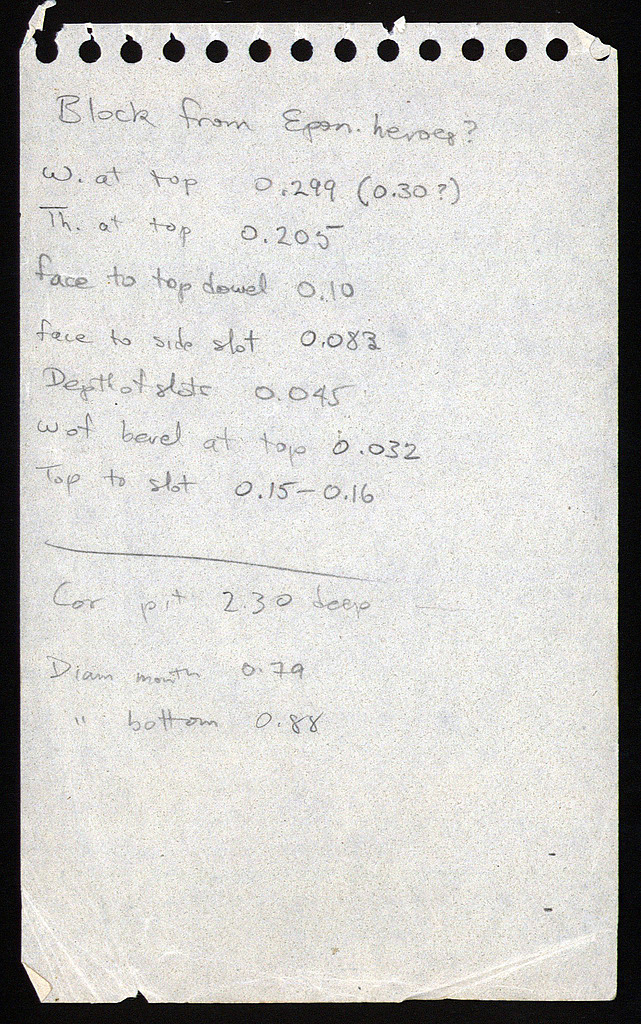 Block from Epon. heroes?
W. at top 0.299 (0.30?)
Th. at top 0.205
face to top dowel 0.10
face to side slot 0.083
Depth of slots 0.045
W of bevel at top 0.032
Top to slot 0.15-0.16
Cor pit 2.30 deep
Diam mouth 0.79
" bottom 0.88